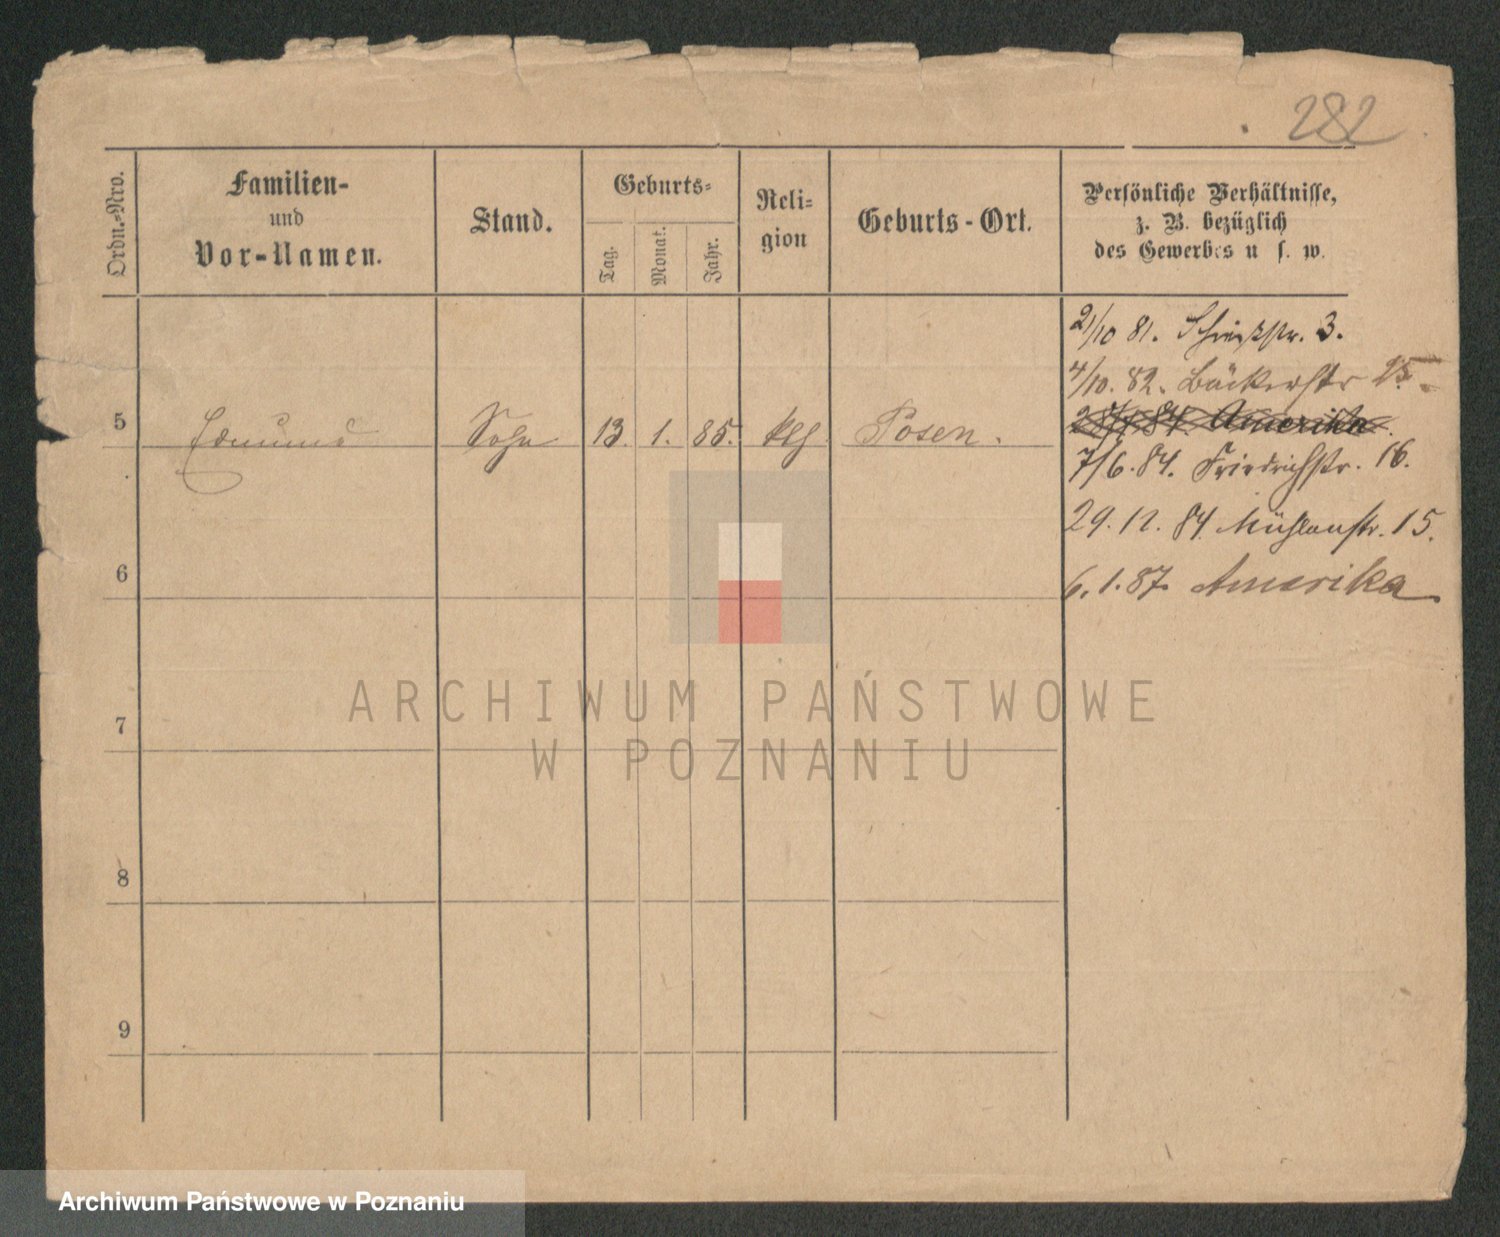 282
Ordn.-Nro.
Familien-
und
Vor-Namen.
Stand.
Geburts-
Tag.
Monat.
Jahr.
Reli-
gion
Geburts-Ort.
Persönliche Verhältnisse,
z. B. bezüglich
des Gewerbes u s. w.
21/10 81. 3.
4/10. 82. Bäckerstr 25.
5 Edmund Sohn 13. 1. 85. kth Posen.
Amerika
7/6. 84. Friedrichstr. 16.
29. 12. 84 Mühlenstr. 15.
6
6. 1. 87. Amerika
7
8
9
ARCHIWUM PAŃSTWOWE
W POZNANIU
Archiwum Państwowe w Poznaniu